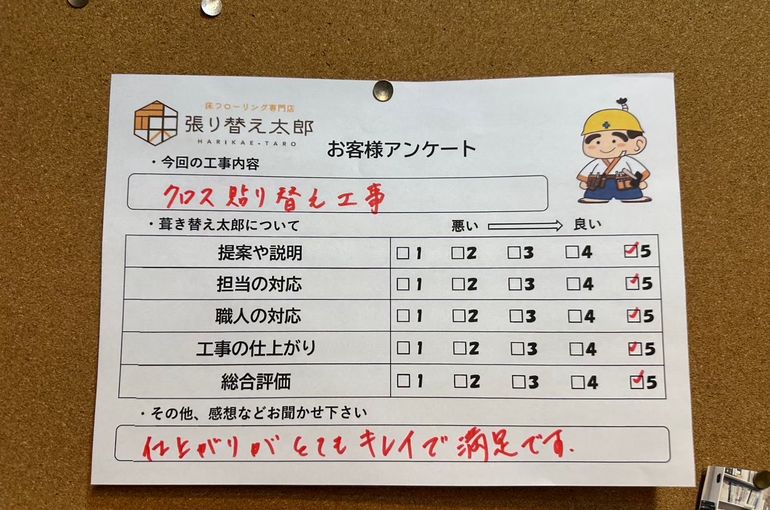 床フローリング専門店
張り替え太郎
HARIKAE-TARO
お客様アンケート
・今回の工事内容
クロス貼り替え工事
・葺き替え太郎について 悪い 良い
提案や説明 1 2 3 4 5
担当の対応 1 2 3 4 5
職人の対応 1 2 3 4 5
工事の仕上がり 1 2 3 4 5
総合評価 1 2 3 4 5
・その他、感想などお聞かせ下さい
仕上がりがとてもキレイで満足です.